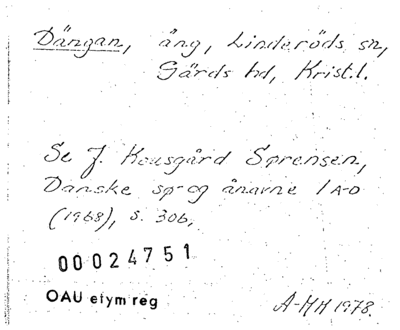 Dängan, äng, Linderöds sn,
Gärds hd, Krist.l.
Se J. Kousgård Sørensen,
Danske sø- og ånavne 1 A-D
(1968), s. 306,
00024751
OAU etym reg
A-HH 1978.